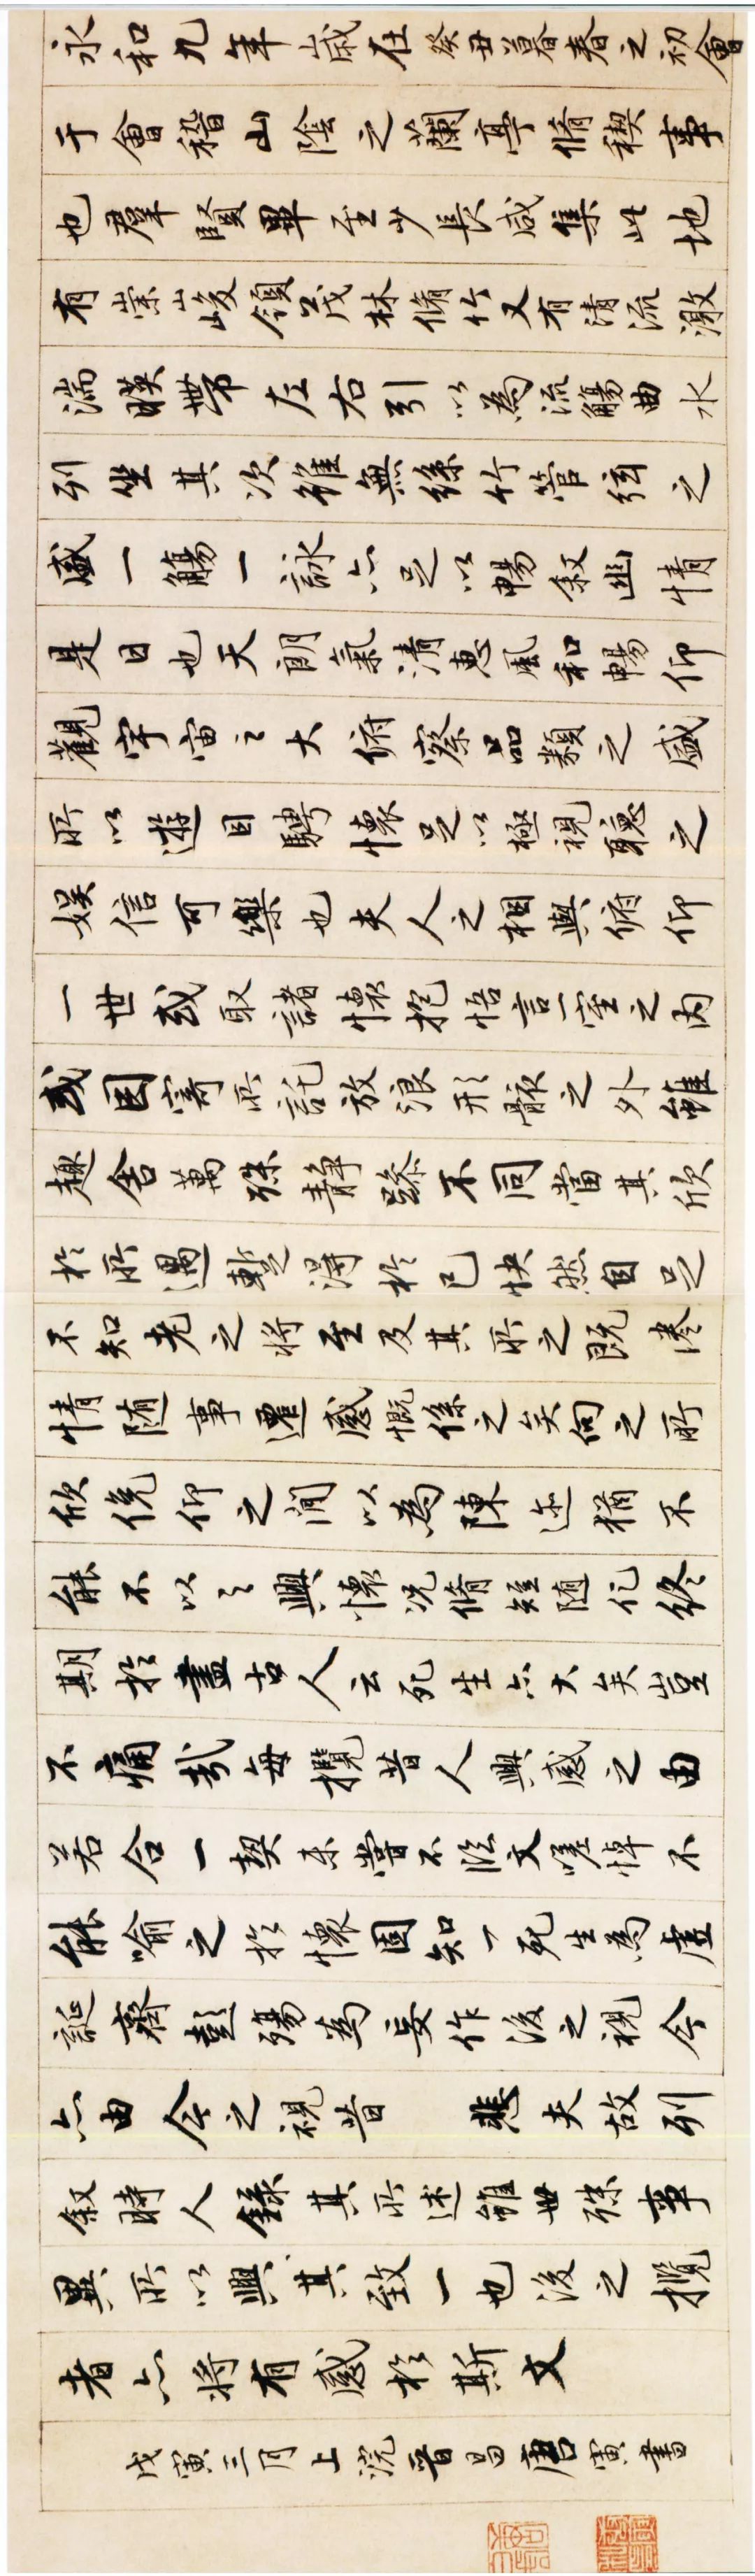 永和九年歲在癸丑暮春之初會
于會稽山陰之蘭亭脩稧事
也羣賢畢至少長咸集此地
有崇山峻領茂林脩竹又有清流激
湍暎帶左右引以為流觴曲水
列坐其次雖無絲竹管弦之
盛一觴一詠亦足以暢敘幽情
是日也天朗氣清惠風和暢仰
觀宇宙之大俯察品類之盛
所以遊目騁懷足以極視聽之
娛信可樂也夫人之相與俯仰
一世或取諸懷抱悟言一室之內
或因寄所託放浪形骸之外雖
趣舍萬殊靜躁不同當其欣
於所遇暫得於己快然自足
不知老之將至及其所之既惓
情随事遷感慨係之矣向之所
欣俛仰之閒以為陳迹猶不
能不以之興懷況脩短随化終
期於盡古人云死生亦大矣豈
不痛哉每攬昔人興感之由
若合一契未嘗不臨文嗟悼不
能喻之於懷固知一死生為虛
誕齊彭殤為妄作後之視今
亦由今之視昔 悲夫故列
敘時人錄其所述雖世殊事
異所以興其致一也後之攬
者亦將有感於斯文
戊寅三月上浣晉昌唐寅書